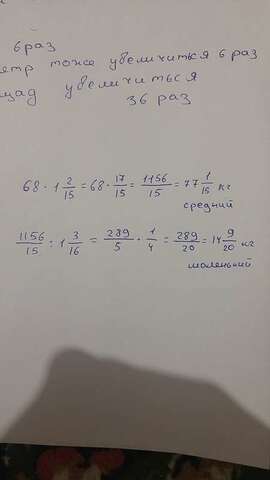 6 раз
етр тоже увеличиться 6 раз
щад увеличиться
36 раз
68 · 1 2/15 = 68 · 17/15 = 1156/15 = 77 1/15 кг
средний
1156/15 : 1 3/16 = 289/5 · 1/4 = 289/20 = 14 9/20 кг
маленький